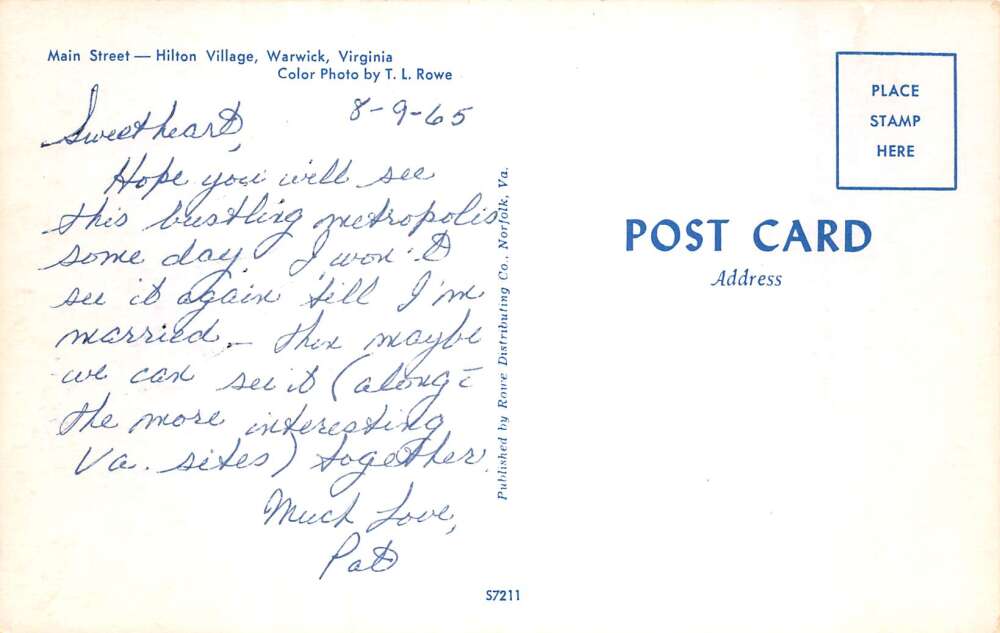 Main Street — Hilton Village, Warwick, Virginia
Color Photo by T. L. Rowe
8-9-65
Sweetheart,
Hope you will see
this bustling metropolis
some day. I won't
see it again till I'm
married – then maybe
we can see it (along c̄
the more interesting
Va. sites) together.
Much Love,
Pat
Published by Rowe Distributing Co., Norfolk, Va.
S7211
PLACE
STAMP
HERE
POST CARD
Address